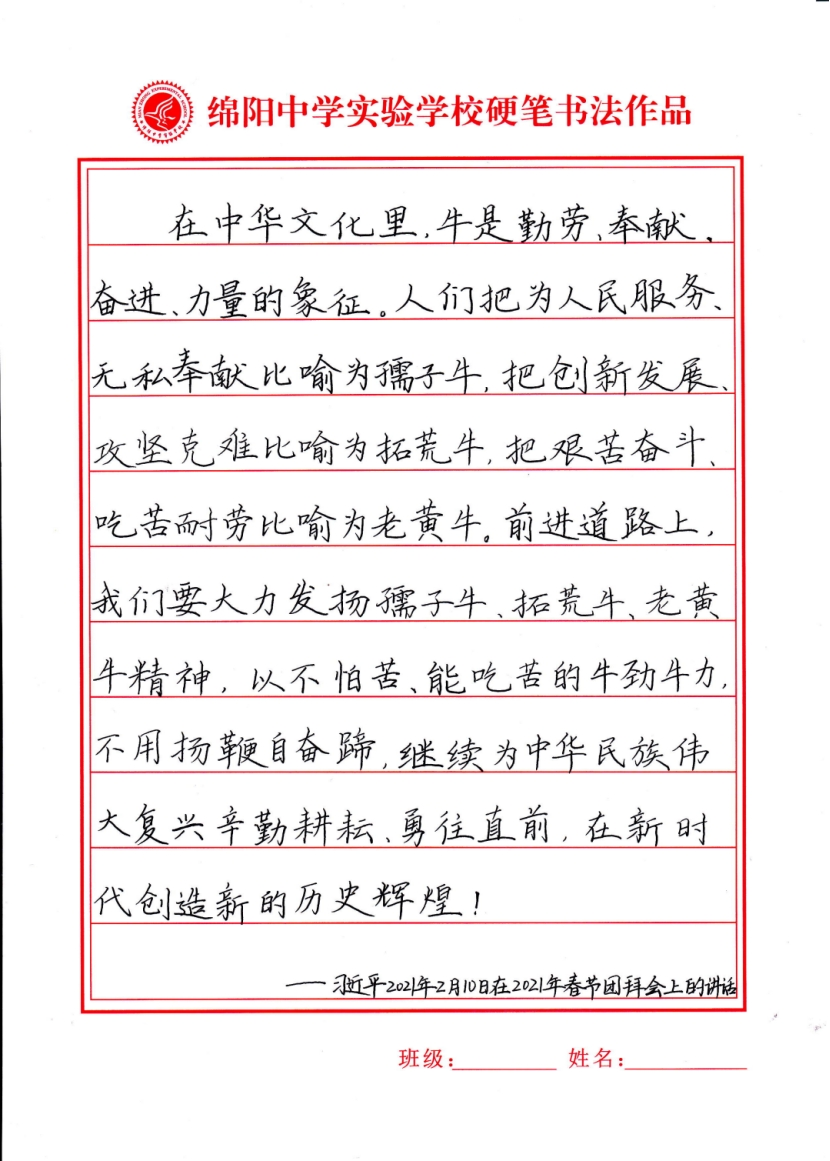 绵阳中学实验学校硬笔书法作品
在中华文化里,牛是勤劳、奉献、
奋进、力量的象征。人们把为人民服务、
无私奉献比喻为孺子牛,把创新发展、
攻坚克难比喻为拓荒牛,把艰苦奋斗、
吃苦耐劳比喻为老黄牛。前进道路上,
我们要大力发扬孺子牛、拓荒牛、老黄
牛精神,以不怕苦、能吃苦的牛劲牛力,
不用扬鞭自奋蹄,继续为中华民族伟
大复兴辛勤耕耘、勇往直前,在新时
代创造新的历史辉煌!
——习近平2021年2月10日在2021年春节团拜会上的讲话
班级: 姓名: